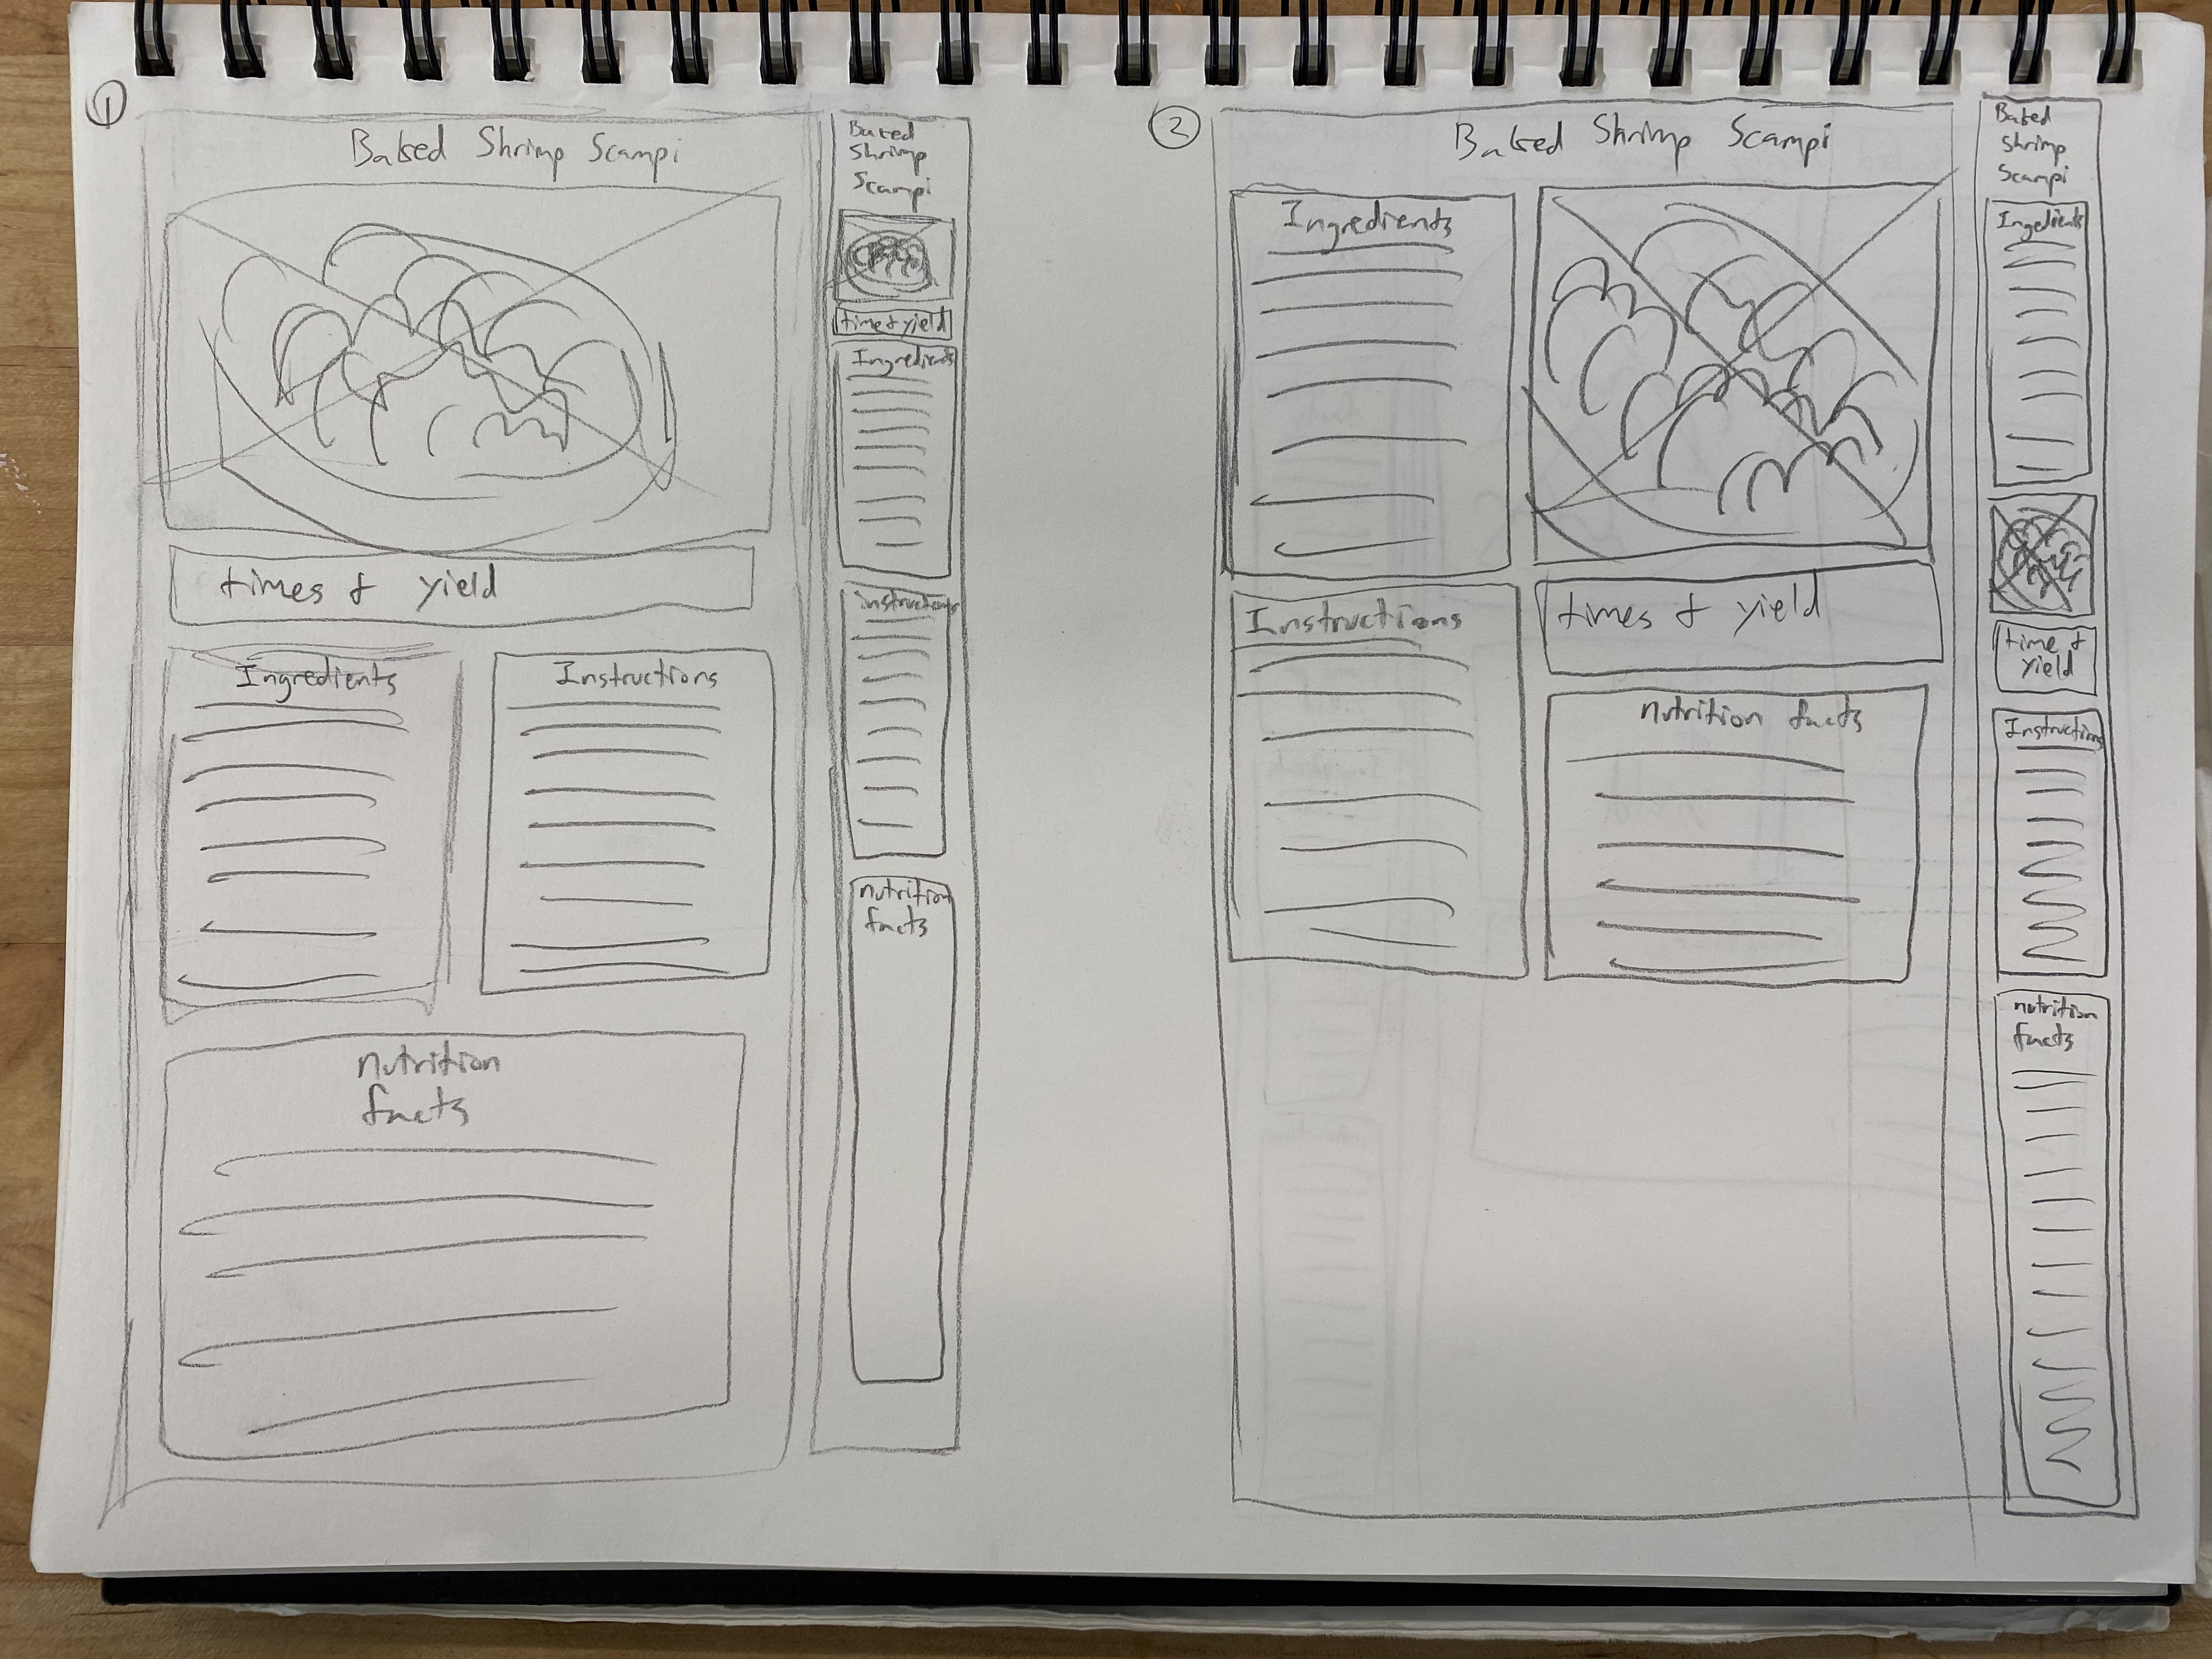 1
Baked Shrimp Scampi
times & yield
Ingredients
Instructions
nutrition
facts
Baked
Shrimp
Scampi
time & yield
Ingredients
instructions
nutrition
facts
2
Baked Shrimp Scampi
Ingredients
Instructions
times & yield
nutrition facts
Baked
Shrimp
Scampi
Ingedients
time &
yield
Instructions
nutrition
facts